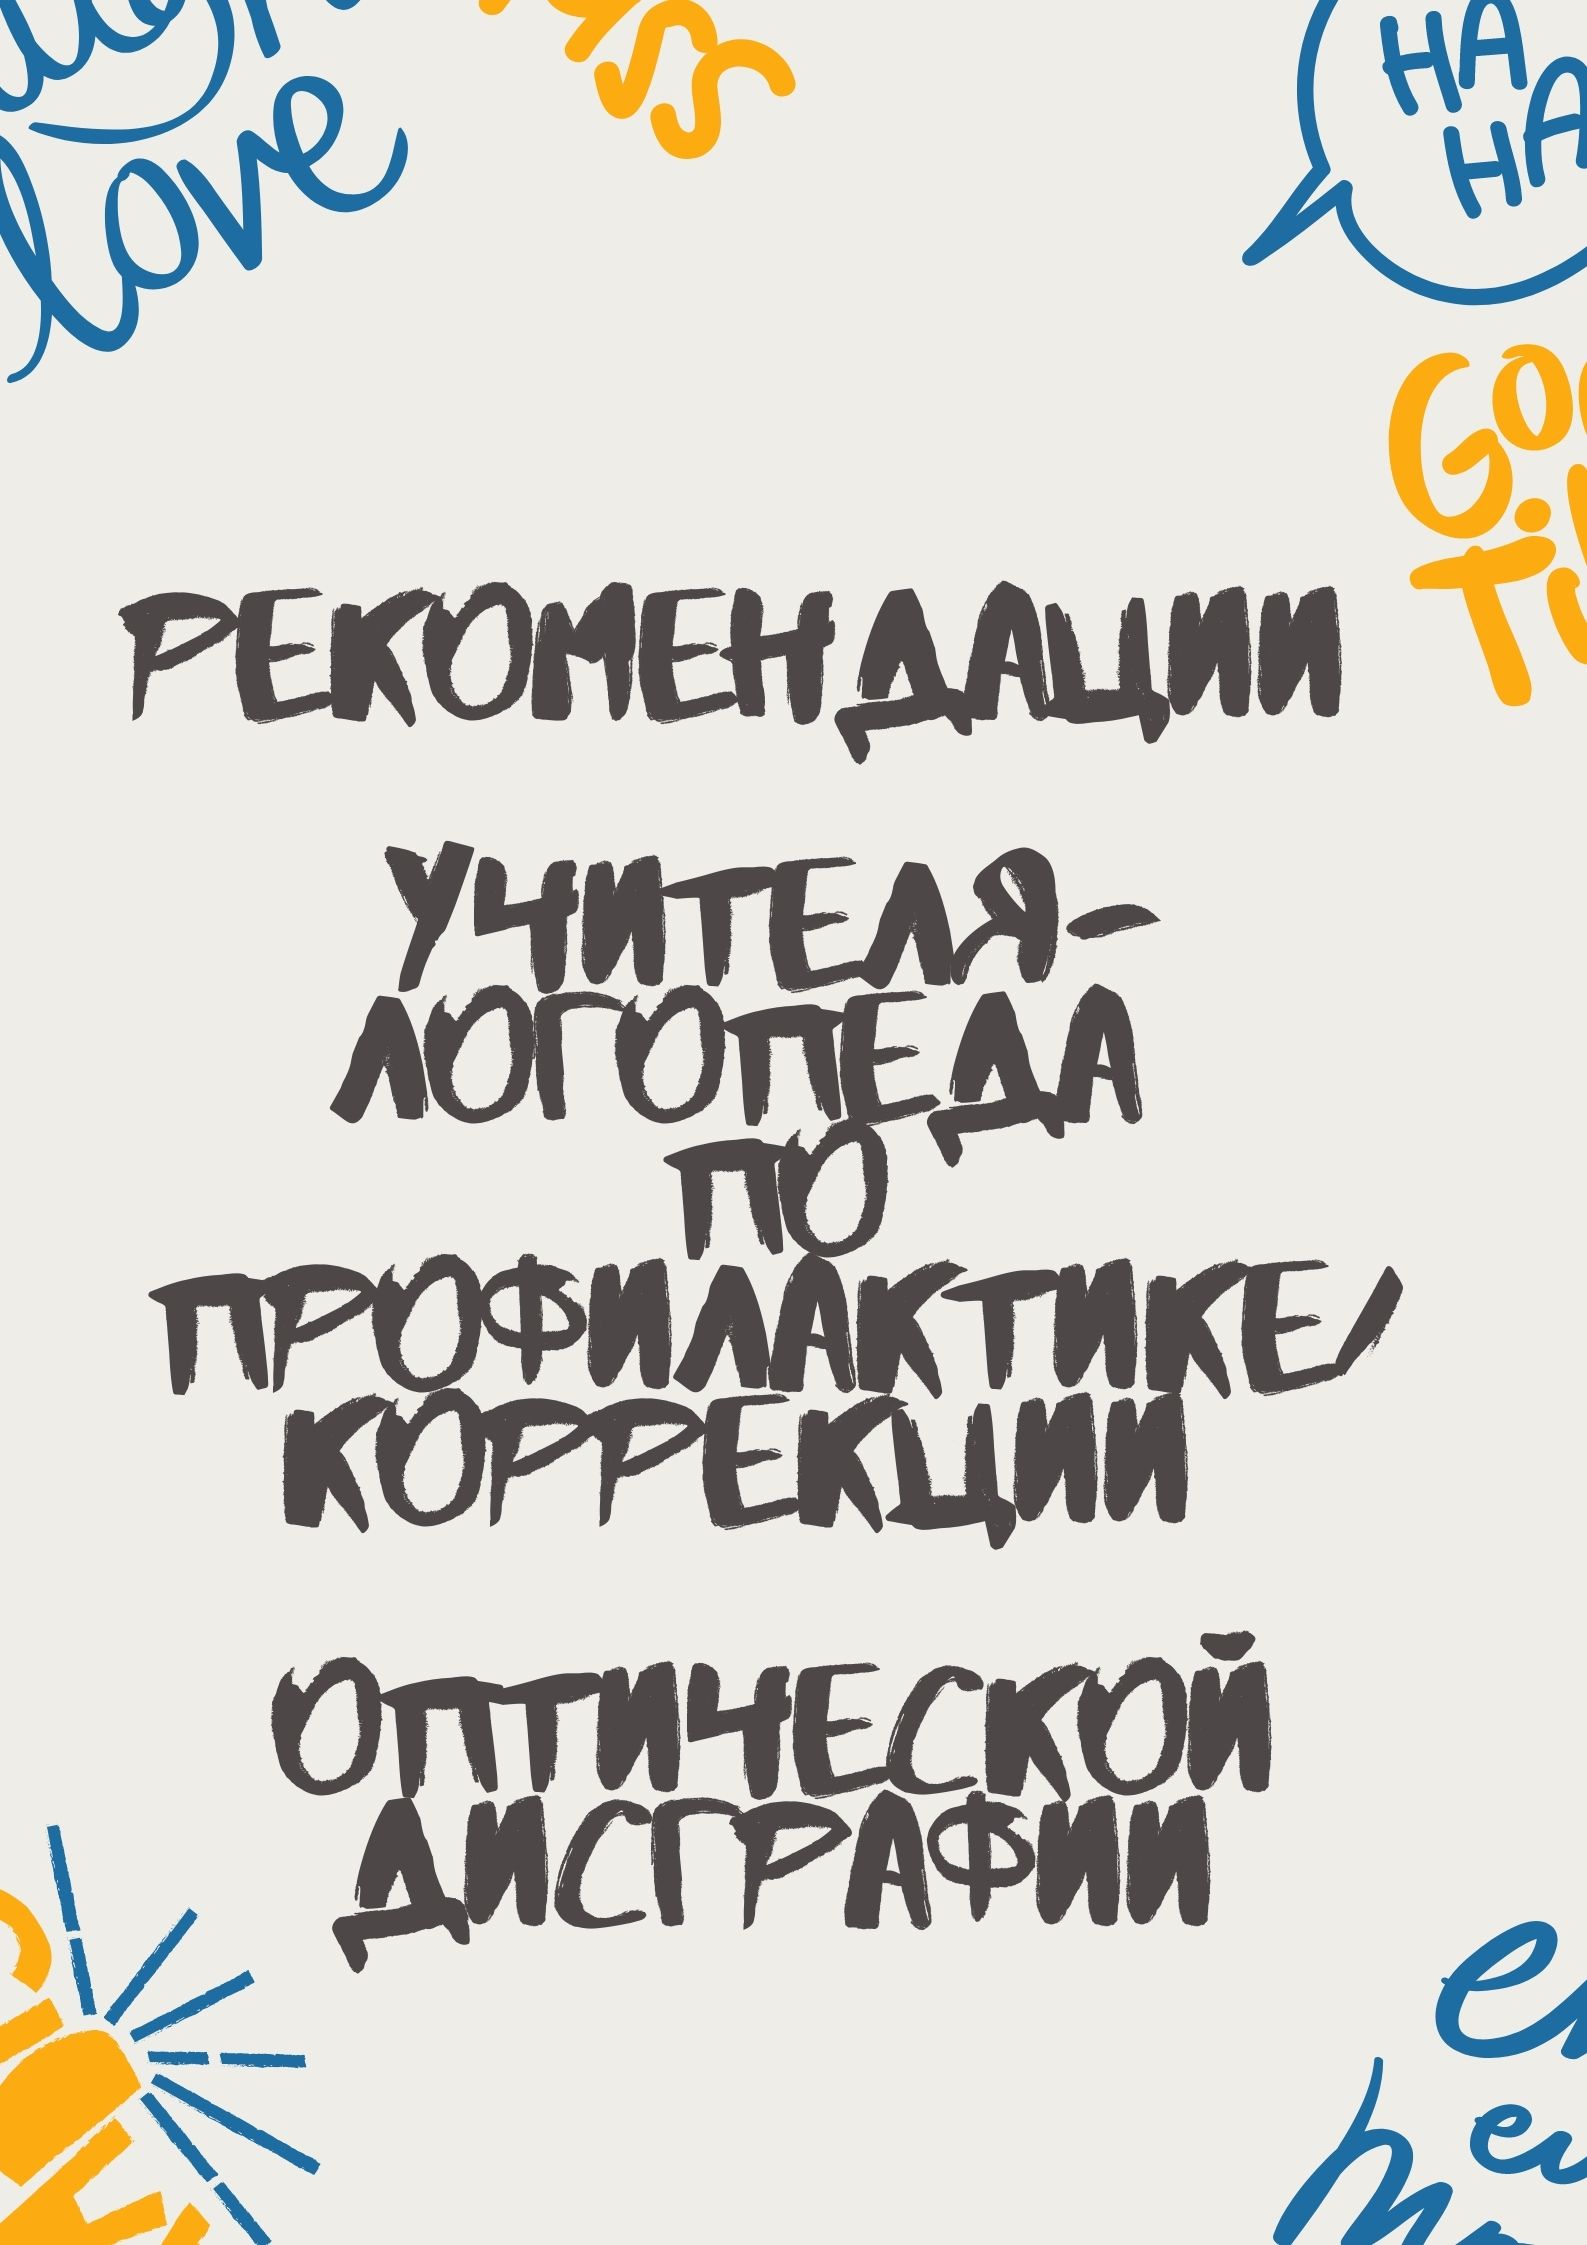 love
HA
HA
РЕКОМЕНДАЦИИ
УЧИТЕЛЯ-
ЛОГОПЕДА
ПО
ПРОФИЛАКТИКЕ/
КОРРЕКЦИИ
ОПТИЧЕСКОЙ
ДИСГРАФИИ